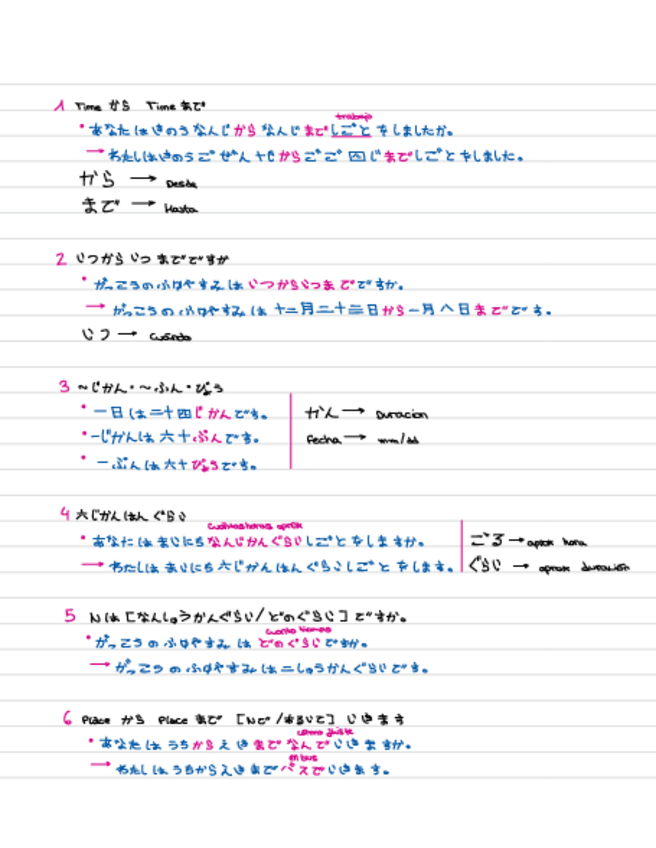 1 Time から Time まで
trabajo
・あなたはきのうなんじからなんじまでしごとをしましたか。
→ わたしはきのうごぜん十じからごご四じまでしごとをしました。
から → Desde
まで → Hasta
2 いつからいつまでですか
・がっこうのふゆやすみはいつからいつまでですか。
→ がっこうのふゆやすみは十二月二十三日から一月八日までです。
いつ → Cuándo
3 〜じかん・〜ふん・びょう
・一日は二十四じかんです。 かん → Duracion
・一じかんは六十ぷんです。 Fecha → mm/dd
・一ぷんは六十びょうです。
4 六じかんはんぐらい
Cuántas horas aprox
・あなたはまいにちなんじかんぐらいしごとをしますか。 ごろ → aprox hora
→ わたしはまいにち六じかんはんぐらいしごとをします。 ぐらい → aprox duración
5 Nは [なんしゅうかんぐらい/どのぐらい] ですか。
Cuanto tiempo
・がっこうのふゆやすみはどのぐらいですか。
→ がっこうのふゆやすみは二しゅうかんぐらいです。
6 Place から Place まで [Nで/あるいて] いきます
como fuiste
・あなたはうちからえきまでなんでいきますか。
en bus
→ わたしはうちからえきまでバスでいきます。